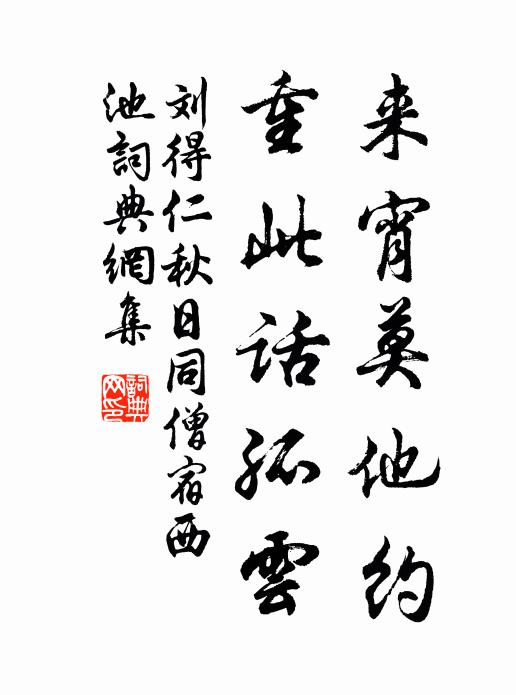 来宵莫他约
重此话孤雲
刘得仁秋日同僧宿西
池詞典網集
詞典网印